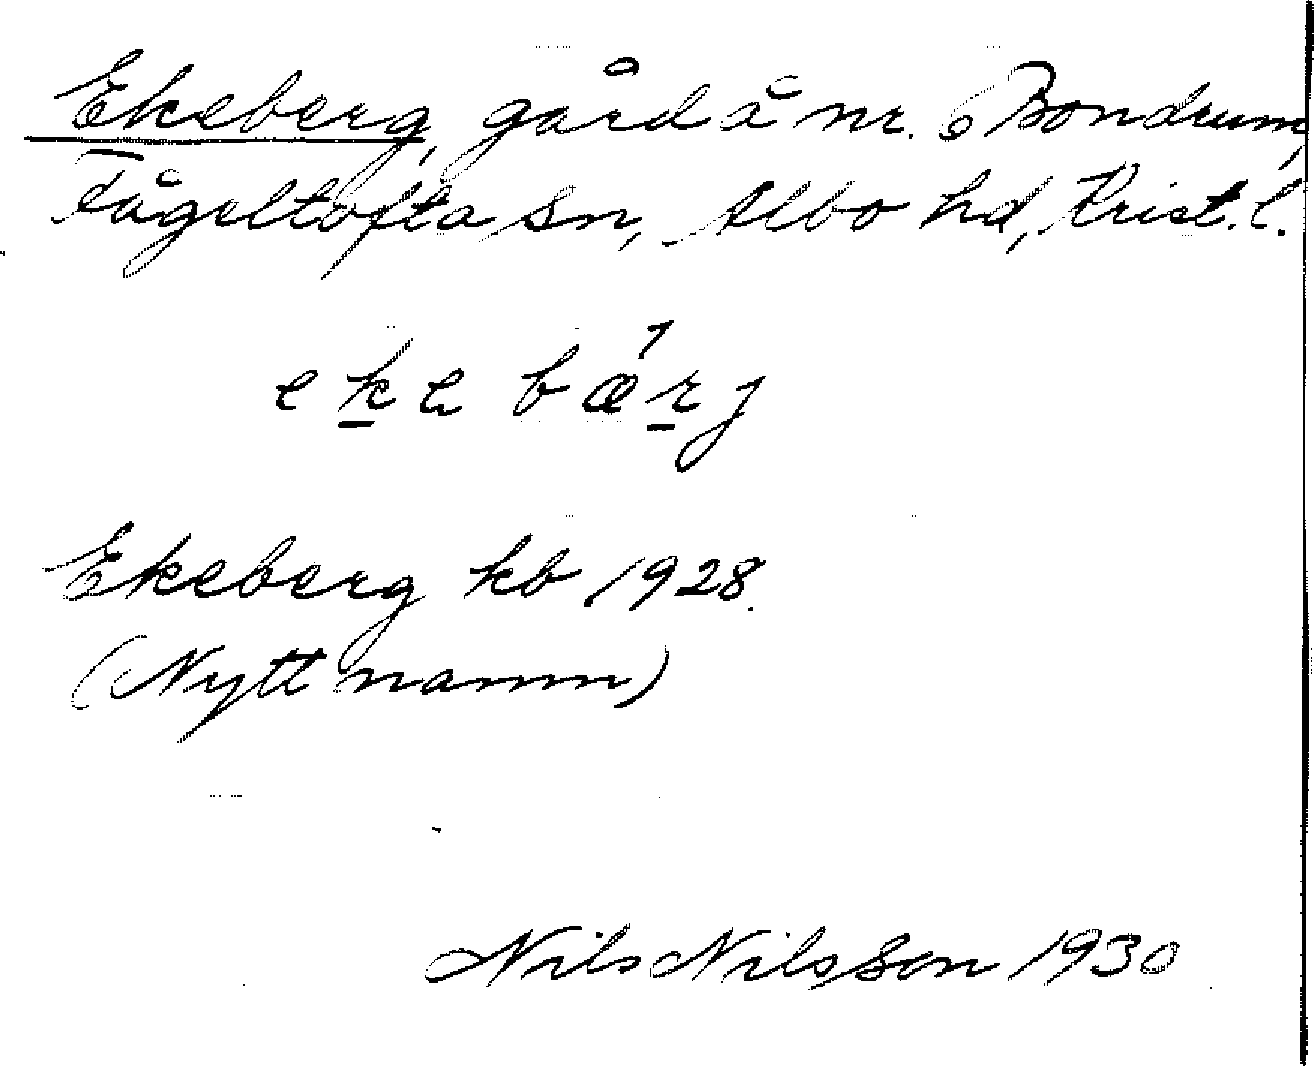 Ekeberg, gård å nr. 6 Bondrum,
Fågeltofta sn, Albo hd, Krist. l.
ekə bǽrj
Ekeberg kb 1928.
(Nytt namn)
Nils Nilsson 1930